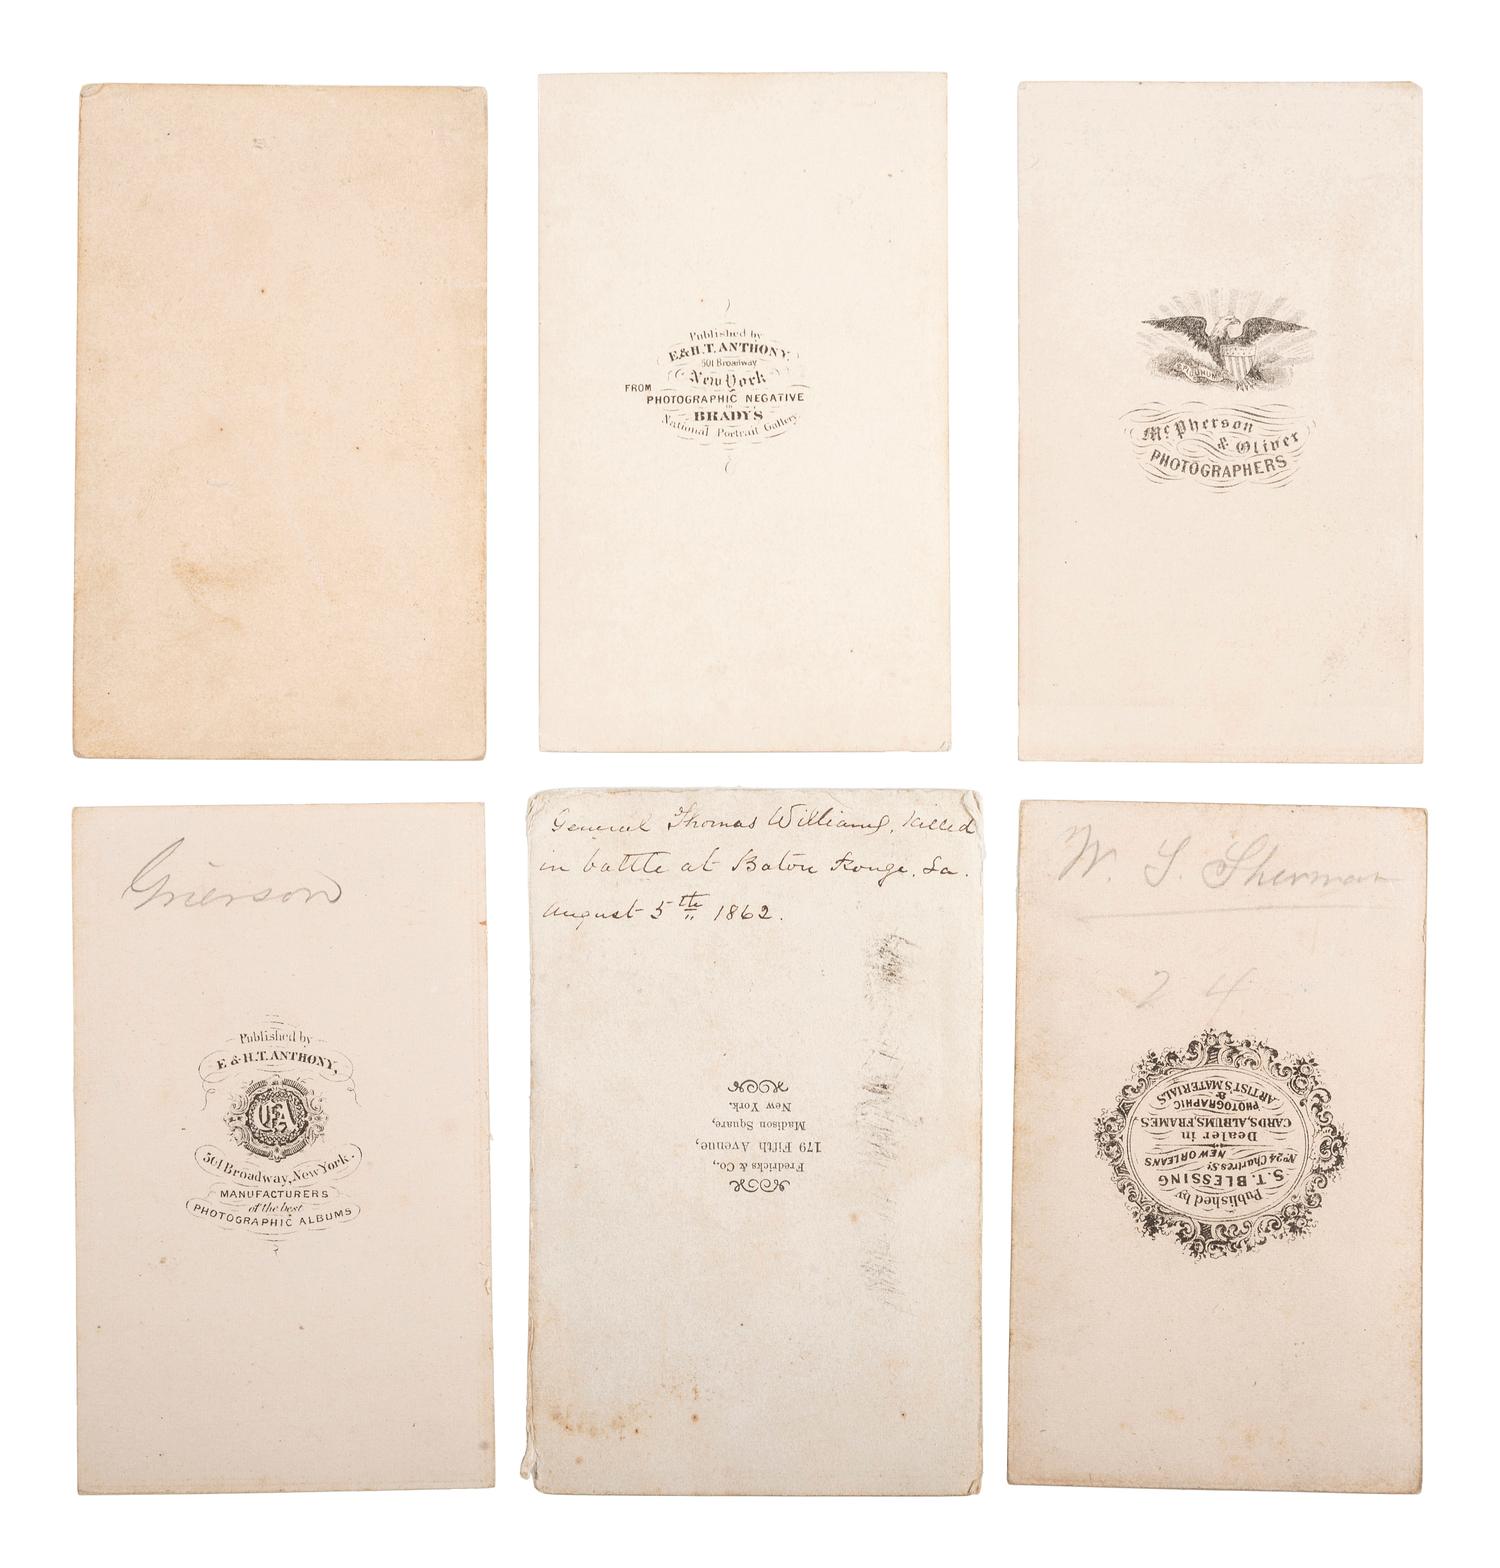 Published by
E & H. T. ANTHONY,
501 Broadway
New York
FROM
PHOTOGRAPHIC NEGATIVE
in
BRADY'S
National Portrait Gallery.
McPherson
& Oliver
PHOTOGRAPHERS
Grierson
Published by
E & H. T. ANTHONY,
501 Broadway, New York.
MANUFACTURERS
of the best
PHOTOGRAPHIC ALBUMS
General Thomas Williams, killed
in battle at Baton Rouge, La.
August 5th 1862.
Fredricks & Co.,
179 Fifth Avenue,
Madison Square,
New York.
W. T. Sherman
24
Published by
S. T. BLESSING
No 24 Chartres St
NEW ORLEANS
Dealer in
CARDS, ALBUMS, FRAMES
PHOTOGRAPHIC
&
ARTIST'S MATERIALS